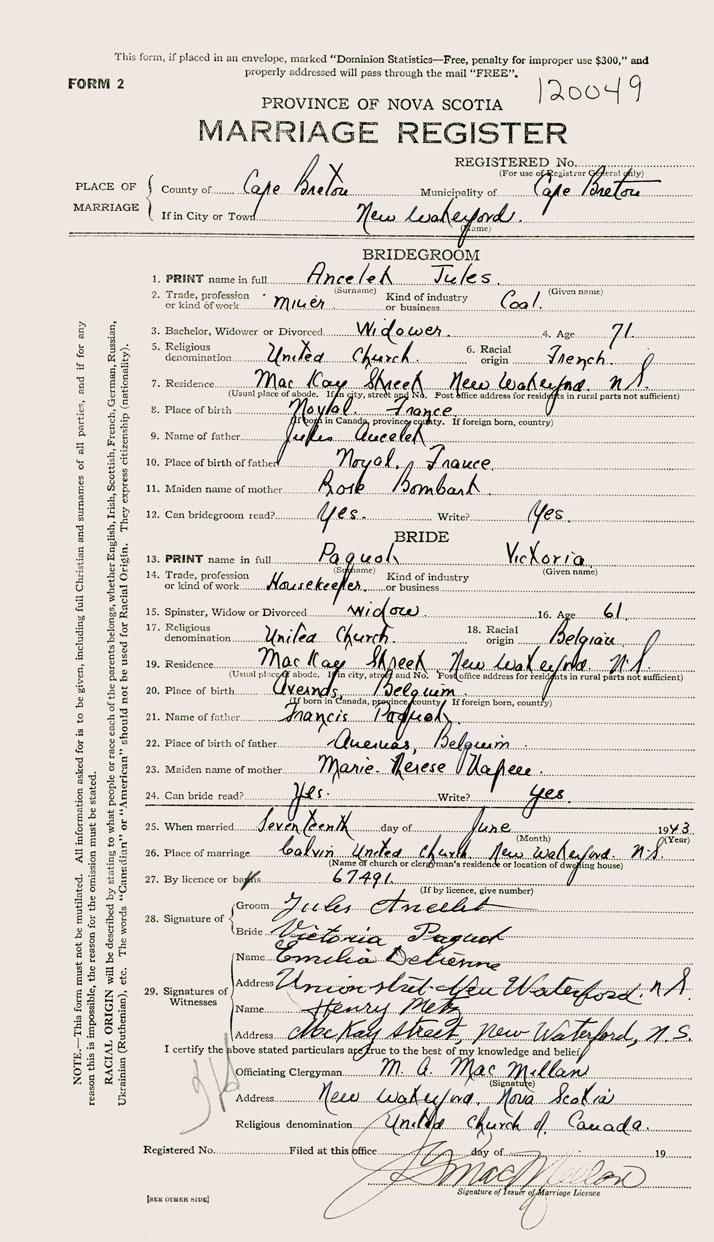 This form, if placed in an envelope, marked "Dominion Statistics—Free, penalty for improper use $300," and
properly addressed will pass through the mail "FREE".
FORM 2
120049
PROVINCE OF NOVA SCOTIA
MARRIAGE REGISTER
REGISTERED No.
(For use of Registrar General only)
PLACE OF MARRIAGE
County of Cape Breton Municipality of Cape Breton
If in City or Town New Waterford.
(Name)
BRIDEGROOM
1. PRINT name in full Ancelet Jules.
(Surname) (Given name)
2. Trade, profession or kind of work miner Kind of industry or business Coal.
3. Bachelor, Widower or Divorced Widower. 4. Age 71.
5. Religious denomination United Church. 6. Racial origin French.
7. Residence MacKay Street New Waterford. N.S.
(Usual place of abode. If in city, street and No. Post office address for residents in rural parts not sufficient)
8. Place of birth Noyal. France
(If born in Canada, province, county. If foreign born, country)
9. Name of father Jules Ancelet
10. Place of birth of father Noyal. France.
11. Maiden name of mother Rose Bombart.
12. Can bridegroom read? Yes. Write? Yes.
BRIDE
13. PRINT name in full Paquot Victoria
(Surname) (Given name)
14. Trade, profession or kind of work Housekeeper. Kind of industry or business
15. Spinster, Widow or Divorced Widow 16. Age 61.
17. Religious denomination United Church. 18. Racial origin Belgian
19. Residence MacKay Street New Waterford. N.S.
(Usual place of abode. If in city, street and No. Post office address for residents in rural parts not sufficient)
20. Place of birth Avernas, Belguim.
(If born in Canada, province, county. If foreign born, country)
21. Name of father Francis Paquot.
22. Place of birth of father Avernas, Belguim.
23. Maiden name of mother Marie. Therese
24. Can bride read? Yes. Write? yes.
25. When married Seventeenth day of June 1943
(Month) (Year)
26. Place of marriage Calvin United Church New Waterford. N.S.
(Name of church or clergyman's residence or location of dwelling house)
27. By licence or banns 67491.
(If by licence, give number)
28. Signature of
Groom Jules Ancelet
Bride Victoria Paquot
29. Signatures of Witnesses
Name Emilia Detienne
Address Union street New Waterford. N.S.
Name Henry Metz
Address McKay street, New Waterford, N.S.
I certify the above stated particulars are true to the best of my knowledge and belief
Officiating Clergyman M. A. MacMillan
(Signature)
Address New Waterford. Nova Scotia
Religious denomination United Church of Canada.
Registered No. Filed at this office day of 19
MacMillan
Signature of Issuer of Marriage Licence
[SEE OTHER SIDE]
NOTE.—This form must not be mutilated. All information asked for is to be given, including full Christian and surnames of all parties, and if for any
reason this is impossible, the reason for the omission must be stated.
RACIAL ORIGIN will be described by stating to what people or race each of the parents belongs, whether English, Irish, Scottish, French, German, Russian,
Ukrainian (Ruthenian), etc. The words "Canadian" or "American" should not be used for Racial Origin. They express citizenship (nationality).